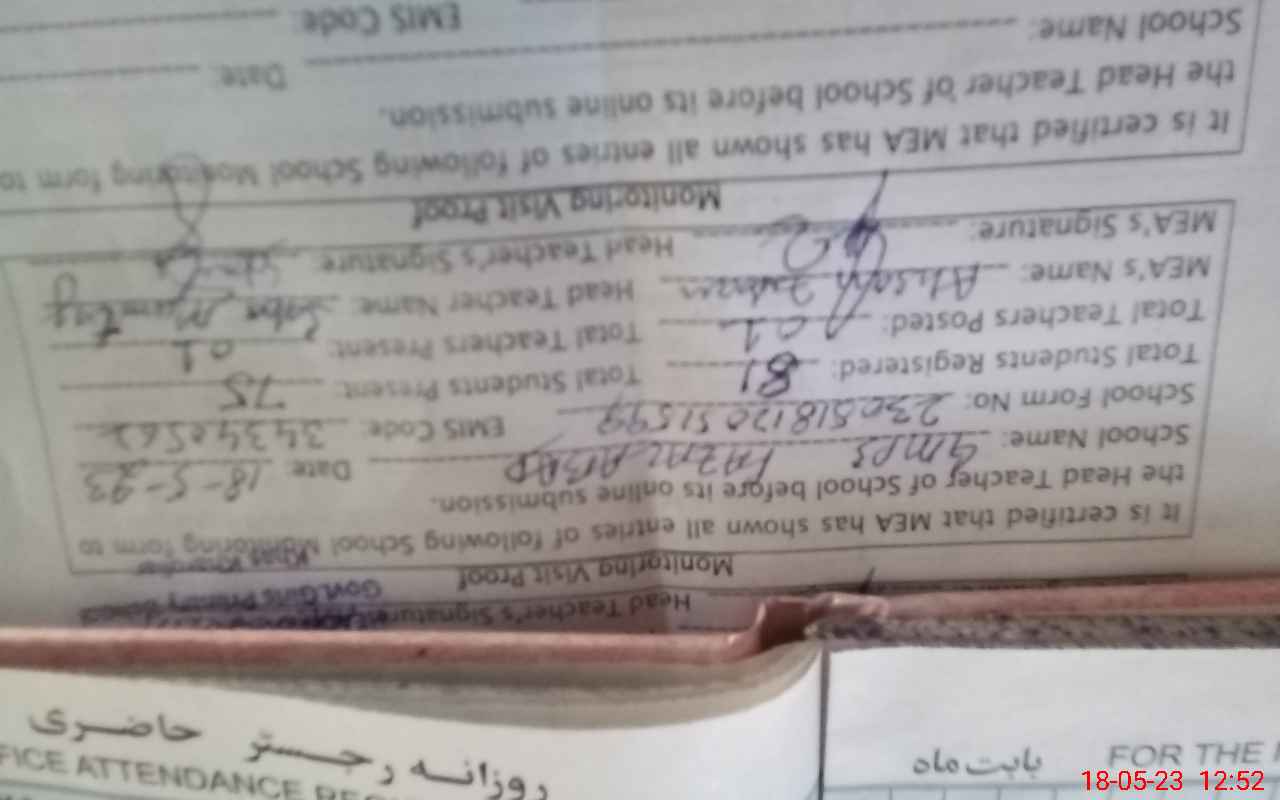 Head Teacher's Signature:
Govt. Girls Primary School
Monitoring Visit Proof
It is certified that MEA has shown all entries of following School Monitoring form to
the Head Teacher of School before its online submission.
School Name: GMPS FAZALABAD Date: 18-5-23
School Form No: 23051812051599 EMIS Code: 34340562
Total Students Registered: 81 Total Students Present: 75
Total Teachers Posted: 01 Total Teachers Present: 01
MEA's Name: Head Teacher Name:
MEA's Signature: Head Teacher's Signature:
Monitoring Visit Proof
It is certified that MEA has shown all entries of following School Monitoring form to
the Head Teacher of School before its online submission.
School Name: Date:
EMIS Code:
روزانہ رجسٹر حاضری
FICE ATTENDANCE REG
بابت ماہ
FOR THE
18-05-23 12:52